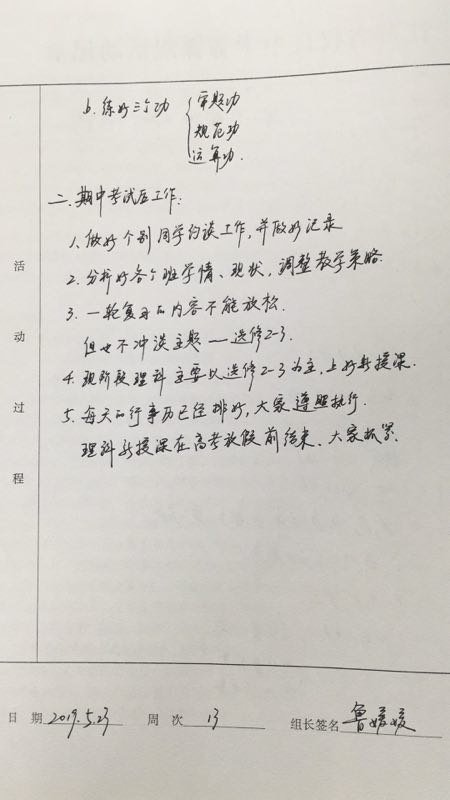 6. 练好三个功 { 审题功
规范功
运算功.
二. 期中考试后工作:
1. 做好个别同学约谈工作, 并做好记录
2. 分析好各个班学情、现状, 调整教学策略.
3. 一轮复习的内容不能放松.
但也不冲淡主题 — 选修2-3.
4. 现阶段理科主要以选修2-3为主, 上好新授课.
5. 每天的行事历已经排好, 大家遵照执行.
理科新授课在高考放假前结束、大家抓紧.
活动过程
日期 2019.5.23 周次 13 组长签名 鲁媛媛